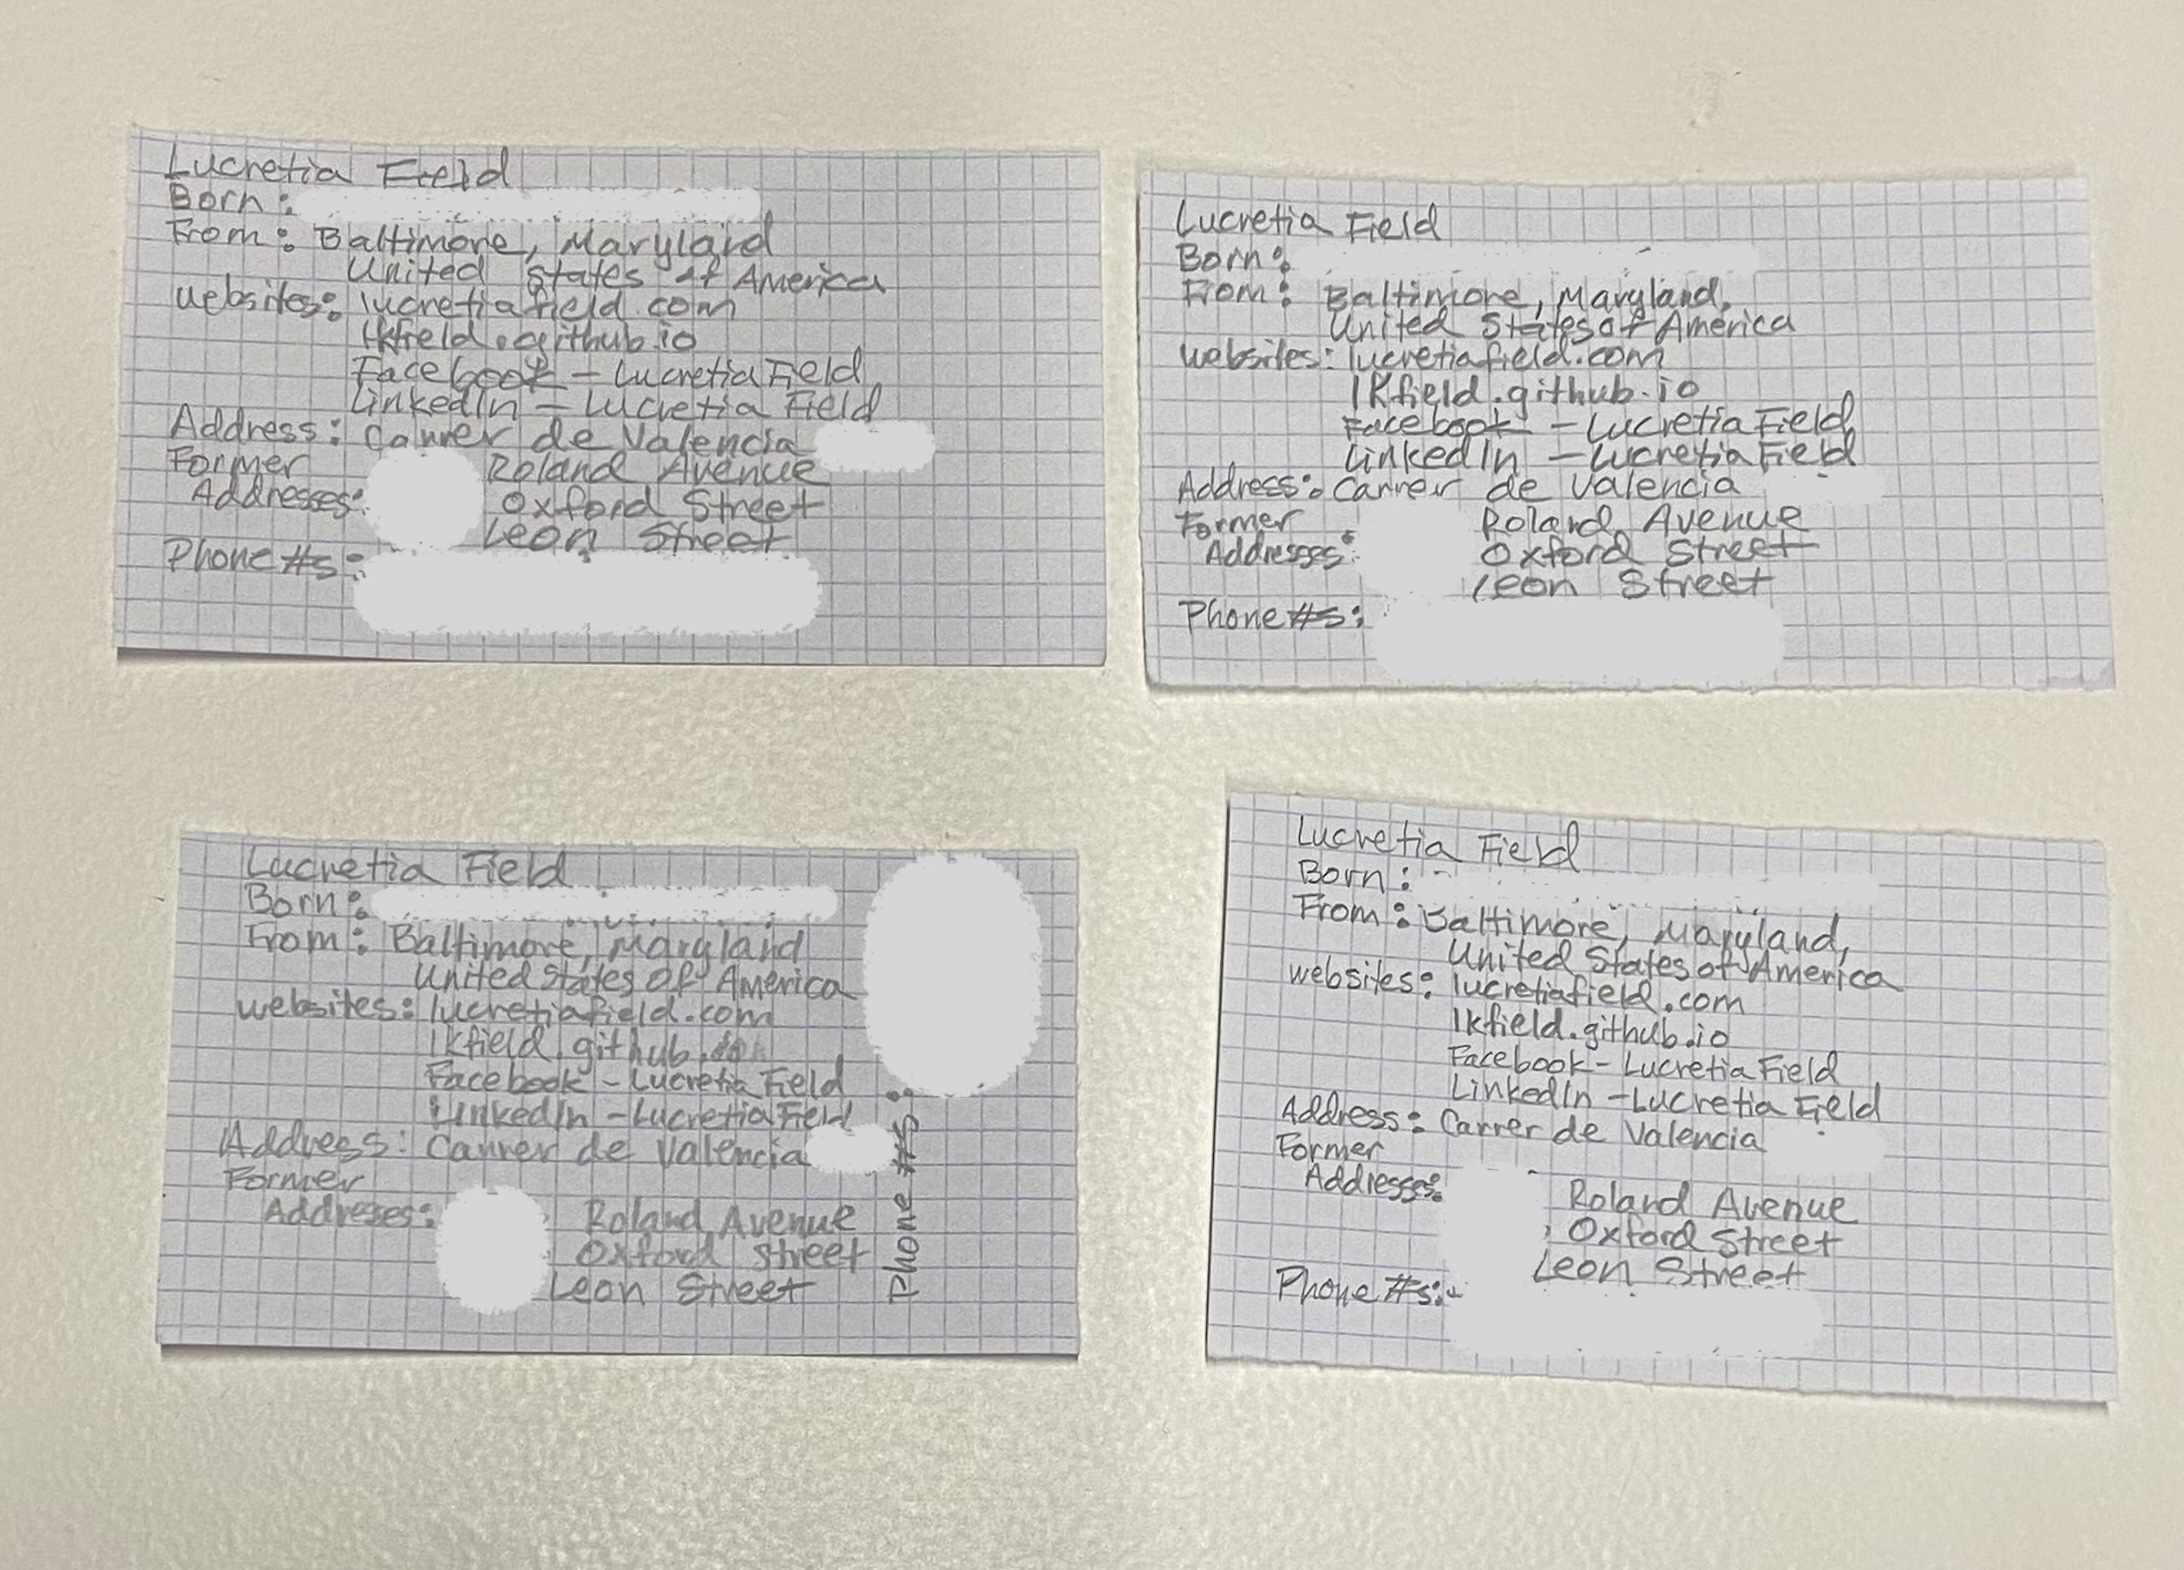 Lucretia Field
Born:
From: Baltimore, Maryland
United States of America
websites: lucretiafield.com
lkfield.github.io
Facebook - Lucretia Field
LinkedIn - Lucretia Field
Address: Carrer de Valencia
Former
Addresses:
Roland Avenue
Oxford Street
Leon Street
Phone #s:
Lucretia Field
Born:
From: Baltimore, Maryland,
United States of America
websites: lucretiafield.com
lkfield.github.io
Facebook - Lucretia Field
LinkedIn - Lucretia Field
Address: Carrer de Valencia
Former
Addresses:
Roland Avenue
Oxford Street
Leon Street
Phone #s:
Lucretia Field
Born:
From: Baltimore, Maryland
United States of America
websites: lucretiafield.com
lkfield.github.
Facebook - Lucretia Field
LinkedIn - Lucretia Field
Address: Carrer de Valencia
Former
Addresses:
Roland Avenue
Oxford Street
Leon Street
Phone #s:
Lucretia Field
Born:
From: Baltimore, Maryland,
United States of America
websites: lucretiafield.com
lkfield.github.io
Facebook - Lucretia Field
LinkedIn - Lucretia Field
Address: Carrer de Valencia
Former
Addresses:
Roland Avenue
Oxford Street
Leon Street
Phone #s: